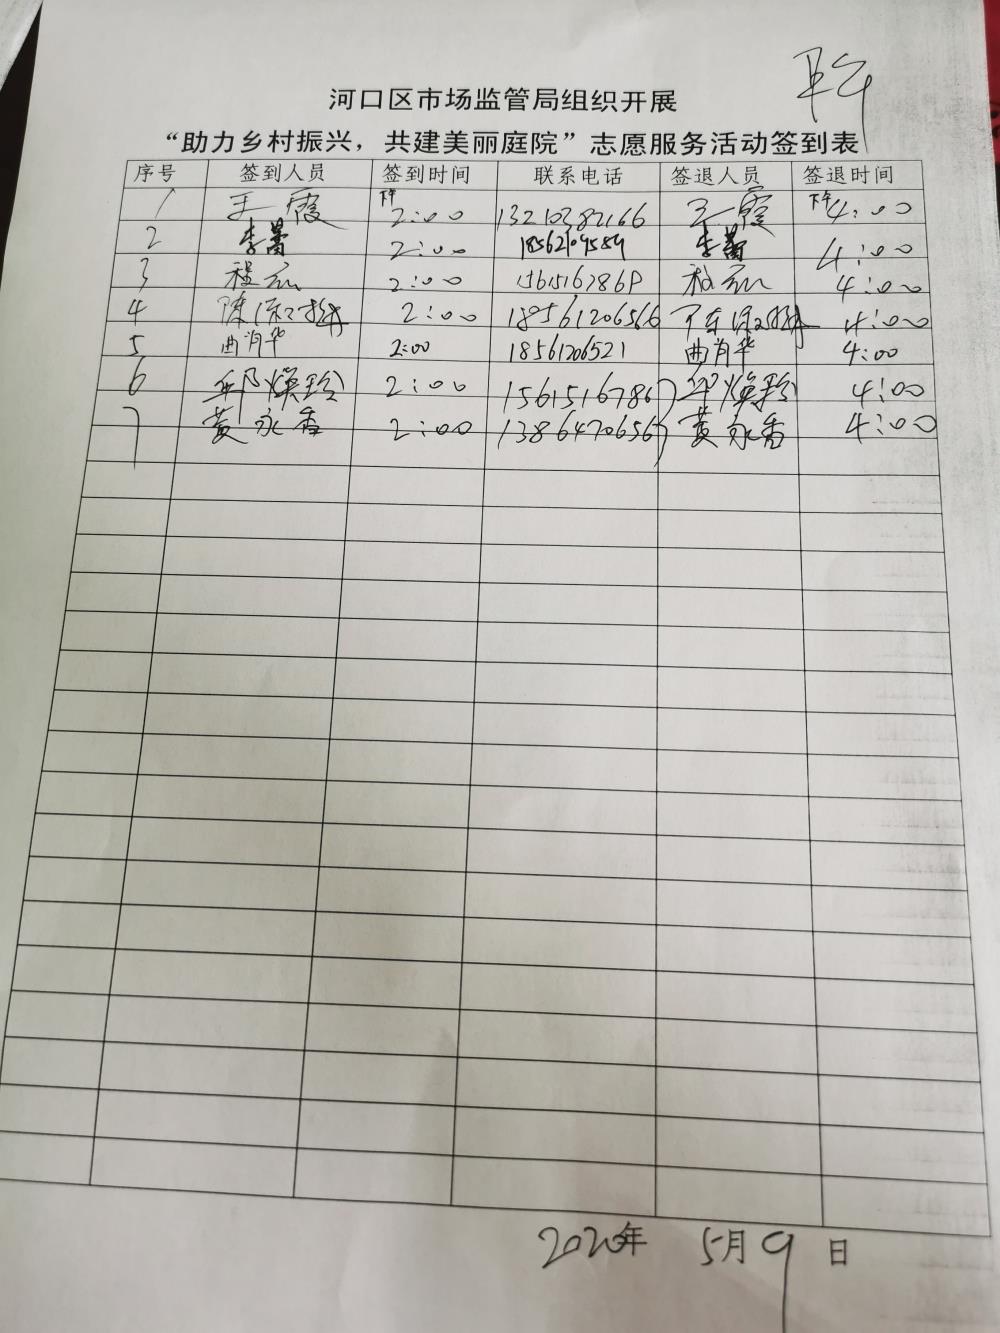 河口区市场监管局组织开展
“助力乡村振兴，共建美丽庭院”志愿服务活动签到表
序号 签到人员 签到时间 联系电话 签退人员 签退时间
1 王霞 下午2:00 13210382166 王霞 下午4:00
2 李蕾 2:00 18562109589 李蕾 4:00
3 程 2:00 15615167869 程 4:00
4 陈 2:00 18561206566 陈 4:00
5 曲肖华 2:00 18561206521 曲肖华 4:00
6 焕玲 2:00 15615167867 焕玲 4:00
7 黄永香 2:00 13864706567 黄永香 4:00
2020年 5月9日